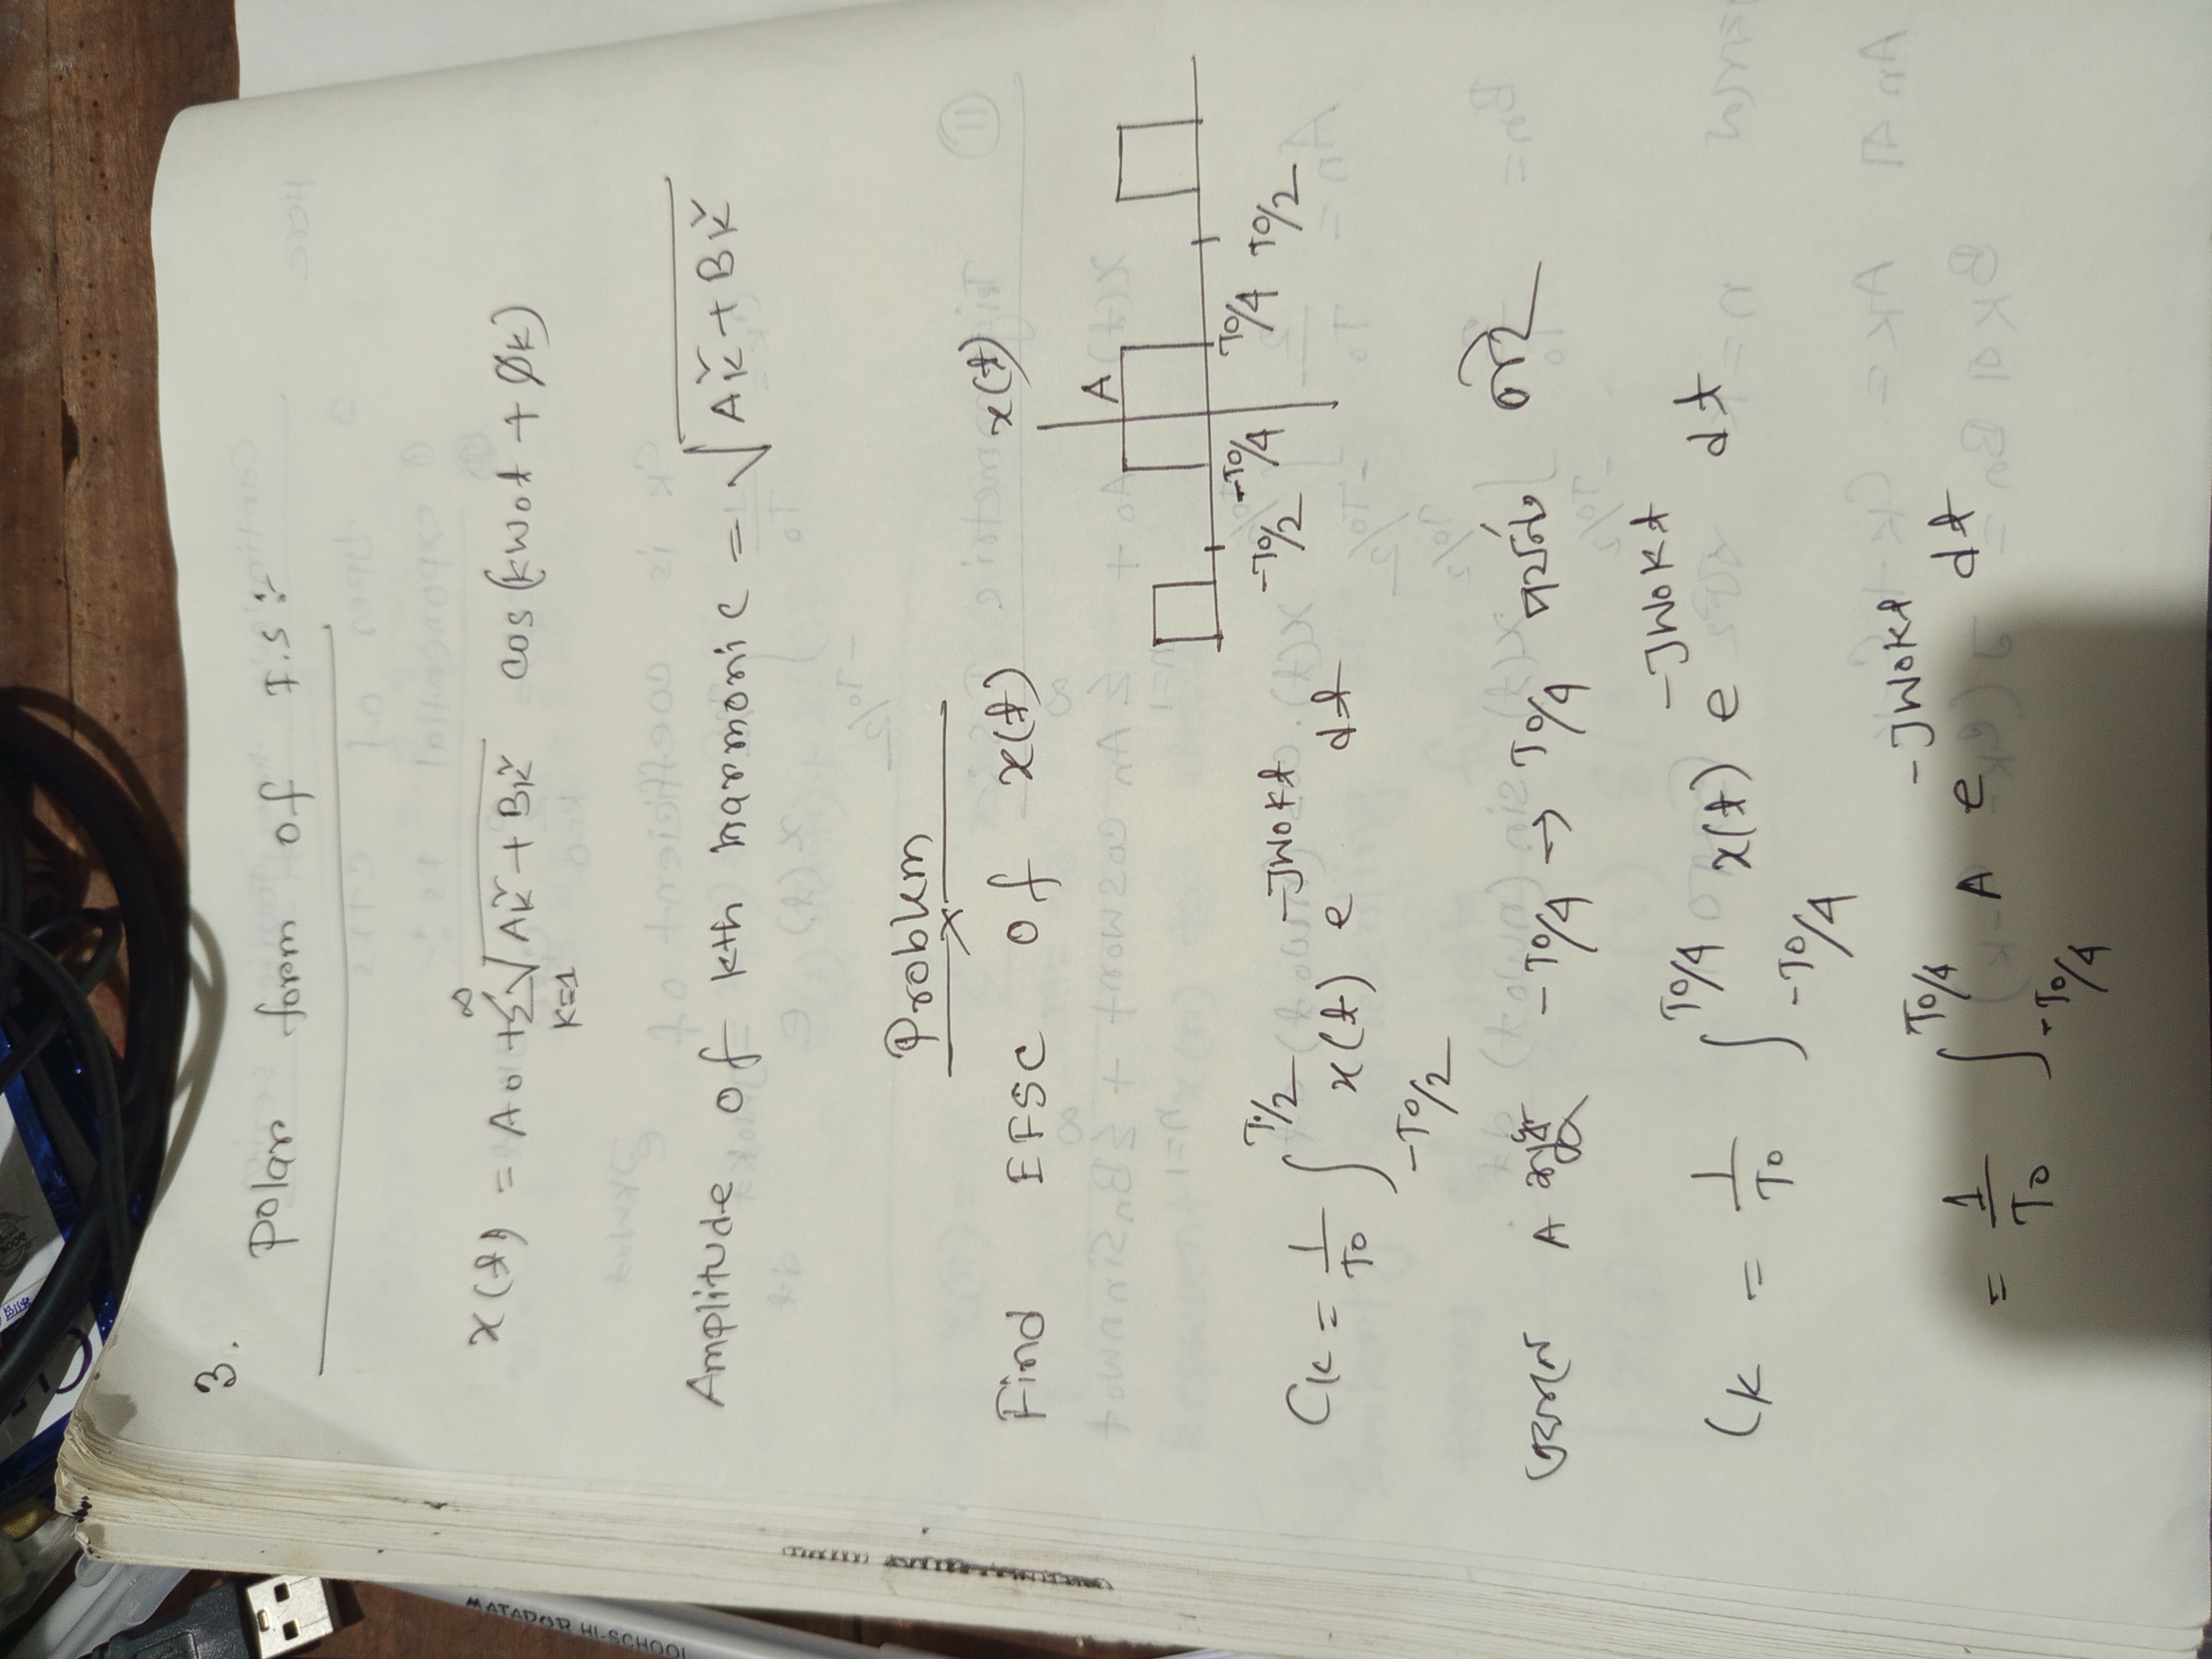 3.
Polar form of F.S :-
x(t) = A₀ + ∞ Σ K=1 √(Aₖ² + Bₖ²) cos(kω₀t + Øₖ)
Amplitude of kth harmonic = √(Aₖ² + Bₖ²)
Problem
Find EFSC of x(t)
x(t)
A
-T₀/2 -T₀/4 T₀/4 T₀/2
Cₖ = 1/T₀ ∫_{-T₀/2}^{T₀/2} x(t) e^{-Jω₀kt} dt
এখানে A শুধু -T₀/4 → T₀/4 পর্যন্ত তাই
Cₖ = 1/T₀ ∫_{-T₀/4}^{T₀/4} x(t) e^{-Jω₀kt} dt
= 1/T₀ ∫_{-T₀/4}^{T₀/4} A e^{-Jω₀kt} dt
MATADOR HI-SCHOOL